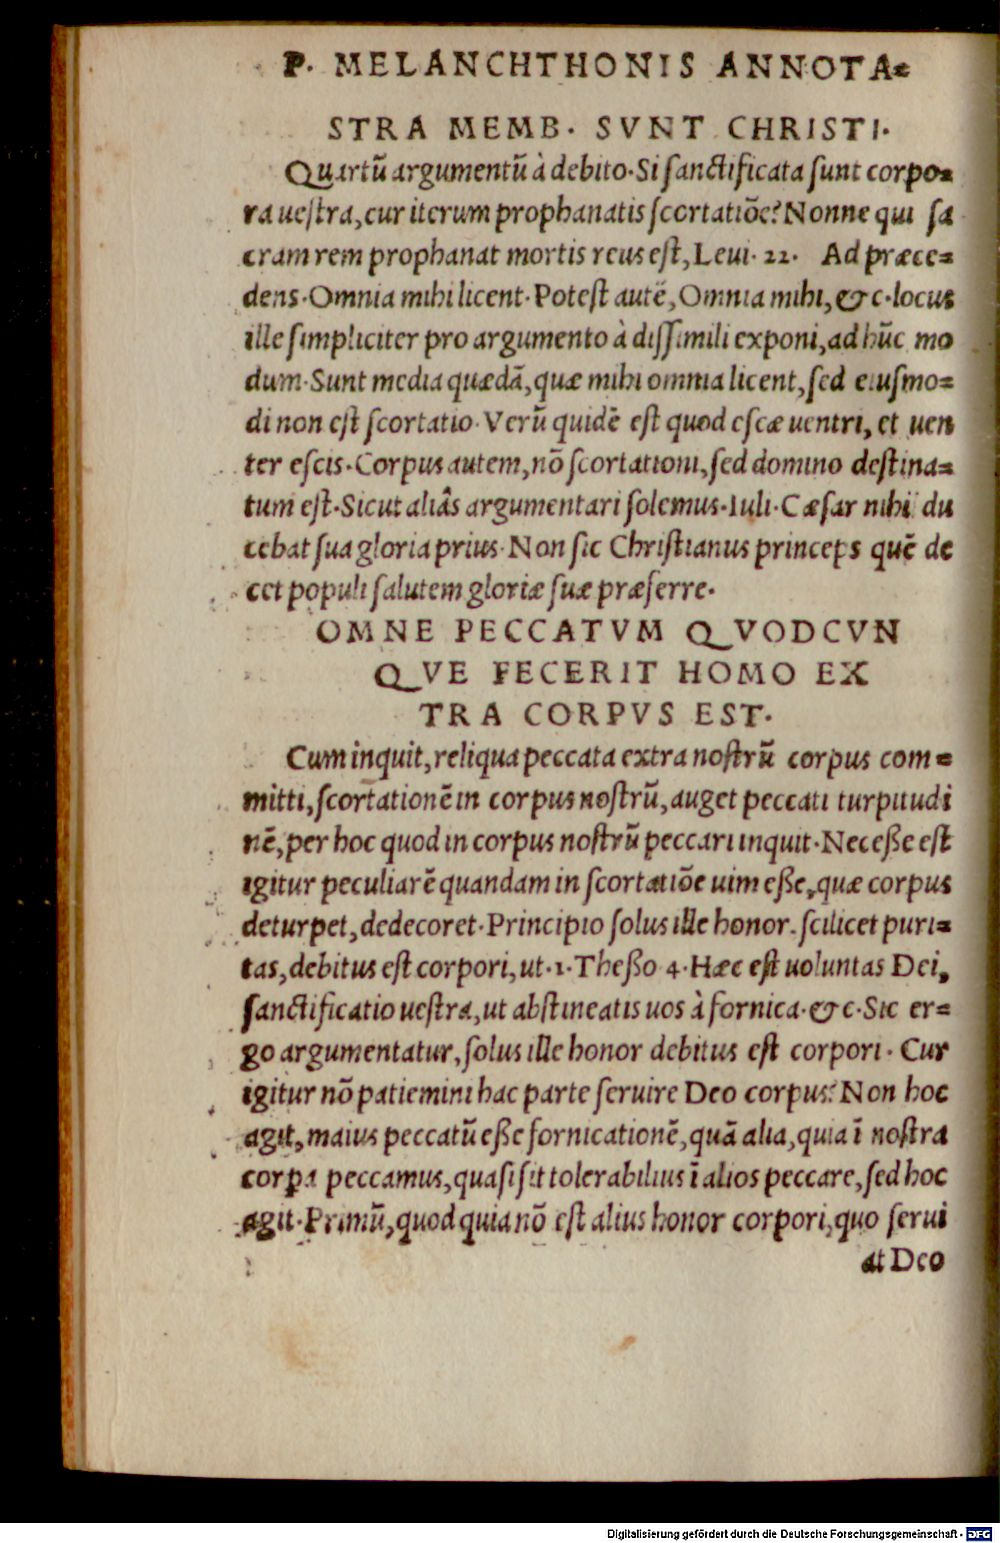 P. MELANCHTHONIS ANNOTA=
STRA MEMB. SVNT CHRISTI.
Quartũ argumentũ à debito. Si ſanctificata ſunt corpo=
ra ueſtra, cur iterum prophanatis ſcortatiõe? Nonne qui ſa
cram rem prophanat mortis reus eſt, Leui. 22. Ad præce=
dens. Omnia mihi licent. Poteſt autẽ, Omnia mihi, &c. locus
ille ſimpliciter pro argumento à diſſimili exponi, ad hũc mo
dum. Sunt media quædã, quæ mihi omnia licent, ſed eiuſmo=
di non eſt ſcortatio. Verũ quidẽ eſt quod eſcæ uentri, et uen
ter eſcis. Corpus autem, nõ ſcortationi, ſed domino deſtina=
tum eſt. Sicut aliâs argumentari ſolemus. Iuli. Cæſar nihi du
cebat ſua gloria prius. Non ſic Chriſtianus princeps quẽ de
cet populi ſalutem gloriæ ſuæ præferre.
OMNE PECCATVM QVODCVN
QVE FECERIT HOMO EX
TRA CORPVS EST.
Cum inquit, reliqua peccata extra noſtrũ corpus com=
mitti, ſcortationẽ in corpus noſtrũ, auget peccati turpitudi
nẽ, per hoc quod in corpus noſtrũ peccari inquit. Neceße eſt
igitur peculiarẽ quandam in ſcortatiõe uim eße, quæ corpus
deturpet, dedecoret. Principio ſolus ille honor. ſcilicet puri=
tas, debitus eſt corpori, ut. 1. Theßo 4. Hæc eſt uoluntas Dei,
ſanctificatio ueſtra, ut abſtineatis uos à fornica. &c. Sic er=
go argumentatur, ſolus ille honor debitus eſt corpori. Cur
igitur nõ patiemini hac parte ſeruire Deo corpus? Non hoc
agit, maius peccatũ eße fornicationẽ, quã alia, quia ĩ noſtra
corpa peccamus, quaſi ſit tolerabilius ĩ alios peccare, ſed hoc
agit. Primũ, quod quia nõ eſt alius honor corpori, quo ſerui
at Deo
Digitalisierung gefördert durch die Deutsche Forschungsgemeinschaft - DFG